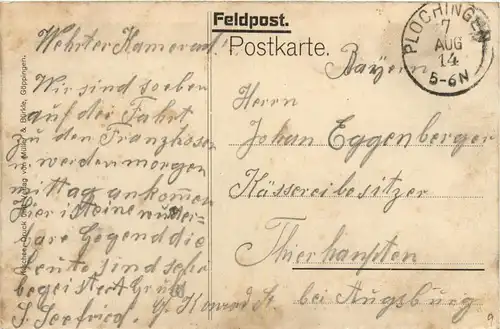 Feldpost.
Postkarte.
PLOCHINGEN
7
AUG
14
5-6N
Wehrter Kamerad!
Wir sind soeben
auf der Fahrt
zu den Franzhosen
u. werden morgen
mittag ankom̅en
hier ist eine wunder-
bare Gegend die
Leute sind sehr
begeistert Gruß
S. Seefried. G. Konrad
Bayern
Herrn
Johan Eggenberger
Kässereibesitzer
Thierhaupten
bei Augsburg
Druck Verlag von Müller & Bürkle, Göppingen.